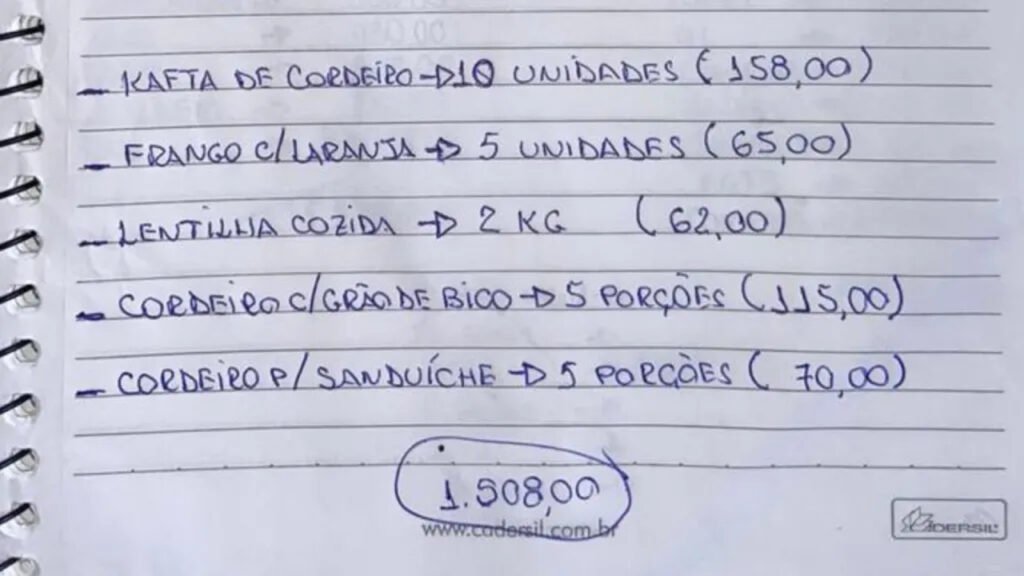 - KAFTA DE CORDEIRO → 10 UNIDADES (158,00)
- FRANGO C/ LARANJA → 5 UNIDADES (65,00)
- LENTILHA COZIDA → 2 KG (62,00)
- CORDEIRO C/ GRÃO DE BICO → 5 PORÇÕES (115,00)
- CORDEIRO P/ SANDUÍCHE → 5 PORÇÕES (70,00)
1.508,00
www.cadersil.com.br
CADERSIL